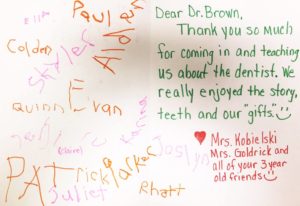 Ella
Paul
Colden
Aldren
Skyler
Quinn
Evan
(Claire)
Patrick
Parker
Joslyn
Juliet
Rhett
Dear Dr. Brown,
Thank you so much
for coming in and teaching
us about the dentist. We
really enjoyed the story,
teeth and our "gifts."
Mrs. Kobielski
Mrs. Goldrick and
all of your 3 year
old friends